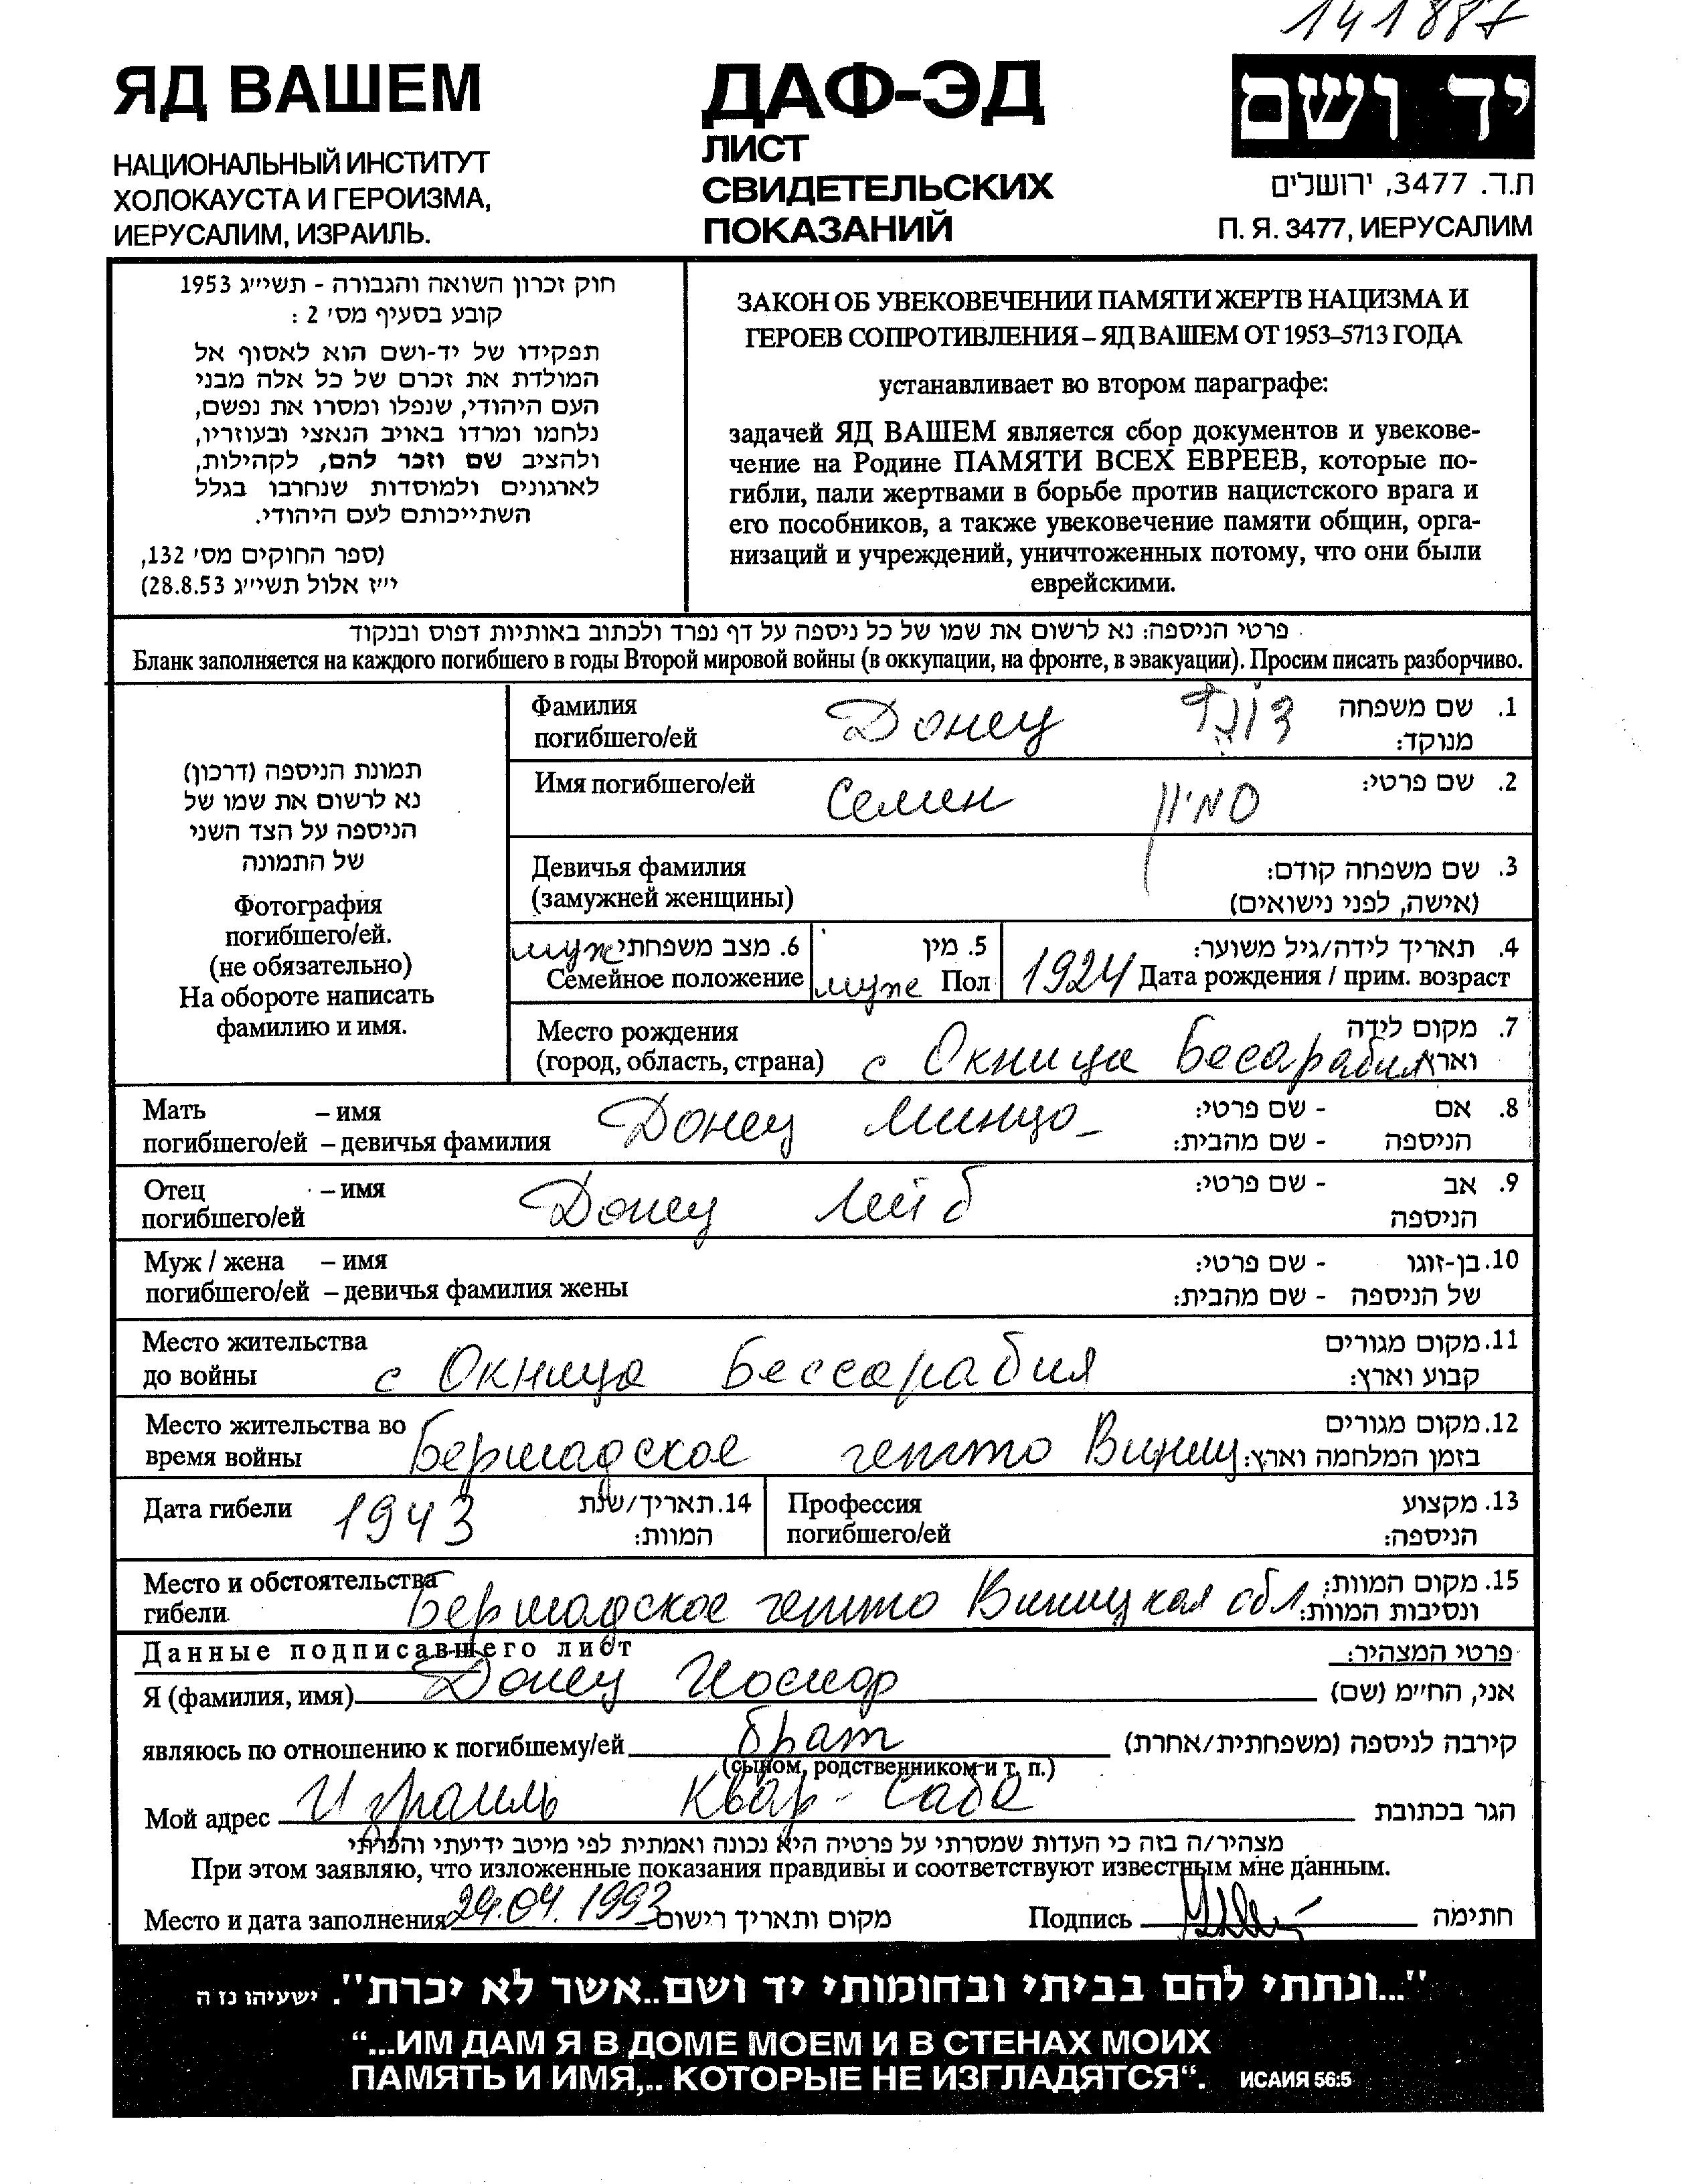 141887
ЯД ВАШЕМ
НАЦИОНАЛЬНЫЙ ИНСТИТУТ
ХОЛОКАУСТА И ГЕРОИЗМА,
ИЕРУСАЛИМ, ИЗРАИЛЬ.
ДАФ-ЭД
ЛИСТ
СВИДЕТЕЛЬСКИХ
ПОКАЗАНИЙ
יד ושם
ת.ד. 3477, ירושלים
П. Я. 3477, ИЕРУСАЛИМ
חוק זכרון השואה והגבורה - תשי״ג 1953
קובע בסעיף מס׳ 2 :
תפקידו של יד-ושם הוא לאסוף אל
המולדת את זכרם של כל אלה מבני
העם היהודי, שנפלו ומסרו את נפשם,
נלחמו ומרדו באויב הנאצי ובעוזריו,
ולהציב שם וזכר להם, לקהילות,
לארגונים ולמוסדות שנחרבו בגלל
השתייכותם לעם היהודי.
(ספר החוקים מס׳ 132,
י״ז אלול תשי״ג 28.8.53)
ЗАКОН ОБ УВЕКОВЕЧЕНИИ ПАМЯТИ ЖЕРТВ НАЦИЗМА И
ГЕРОЕВ СОПРОТИВЛЕНИЯ – ЯД ВАШЕМ ОТ 1953–5713 ГОДА
устанавливает во втором параграфе:
задачей ЯД ВАШЕМ является сбор документов и увекове-
чение на Родине ПАМЯТИ ВСЕХ ЕВРЕЕВ, которые по-
гибли, пали жертвами в борьбе против нацистского врага и
его пособников, а также увековечение памяти общин, орга-
низаций и учреждений, уничтоженных потому, что они были
еврейскими.
פרטי הניספה: נא לרשום את שמו של כל ניספה על דף נפרד ולכתוב באותיות דפוס ובנקוד
Бланк заполняется на каждого погибшего в годы Второй мировой войны (в оккупации, на фронте, в эвакуации). Просим писать разборчиво.
תמונת הניספה (דרכון)
נא לרשום את שמו של
הניספה על הצד השני
של התמונה
Фотография
погибшего/ей.
(не обязательно)
На обороте написать
фамилию и имя.
Фамилия Донец 1. שם משפחה
погибшего/ей מנוקד:
Имя погибшего/ей Семен סמיון 2. שם פרטי:
Девичья фамилия 3. שם משפחה קודם:
(замужней женщины) (אישה, לפני נישואים)
муж 6. מצב משפחתי 5. מין 4. תאריך לידה/גיל משוער:
Семейное положение муж Пол 1924 Дата рождения / прим. возраст
Место рождения 7. מקום לידה
(город, область, страна) с Окница Бесарабия וארץ
Мать – имя Донец Минцо 8. אם - שם פרטי:
погибшего/ей – девичья фамилия הניספה - שם מהבית:
Отец – имя Донец Лейб 9. אב - שם פרטי:
погибшего/ей הניספה
Муж / жена – имя 10. בן-זוגו - שם פרטי:
погибшего/ей – девичья фамилия жены של הניספה - שם מהבית:
Место жительства 11. מקום מגורים
до войны с Окница Бессарабия קבוע וארץ:
Место жительства во 12. מקום מגורים
время войны Бершадское гетто Виниц בזמן המלחמה וארץ:
Дата гибели 1943 14. תאריך/שנת המוות: Профессия 13. מקצוע
погибшего/ей הניספה:
Место и обстоятельства 15. מקום המוות:
гибели Бершадское гетто Виницкая обл ונסיבות המוות:
Данные подписавшего лист פרטי המצהיר:
Я (фамилия, имя) Донец Иосиф אני, החי״מ (שם)
являюсь по отношению к погибшему/ей брат קירבה לניספה (משפחתית/אחרת)
(сыном, родственником и т. п.)
Мой адрес Израиль Квар-Саба הגר בכתובת
מצהיר/ה בזה כי העדות שמסרתי על פרטיה היא נכונה ואמתית לפי מיטב ידיעתי והכרתי
При этом заявляю, что изложенные показания правдивы и соответствуют известным мне данным.
Место и дата заполнения 29.04.1993 מקום ותאריך רישום Подпись חתימה
"...ונתתי להם בביתי ובחומותי יד ושם..אשר לא יכרת". ישעיהו נז ה
“...ИМ ДАМ Я В ДОМЕ МОЕМ И В СТЕНАХ МОИХ
ПАМЯТЬ И ИМЯ,.. КОТОРЫЕ НЕ ИЗГЛАДЯТСЯ“. ИСАИЯ 56:5